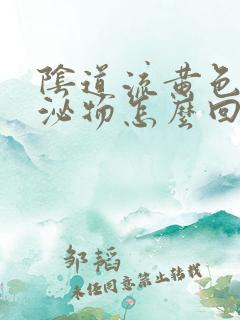 陰道流黄色
泌物怎麽回
邹韬
未经同意禁止转载